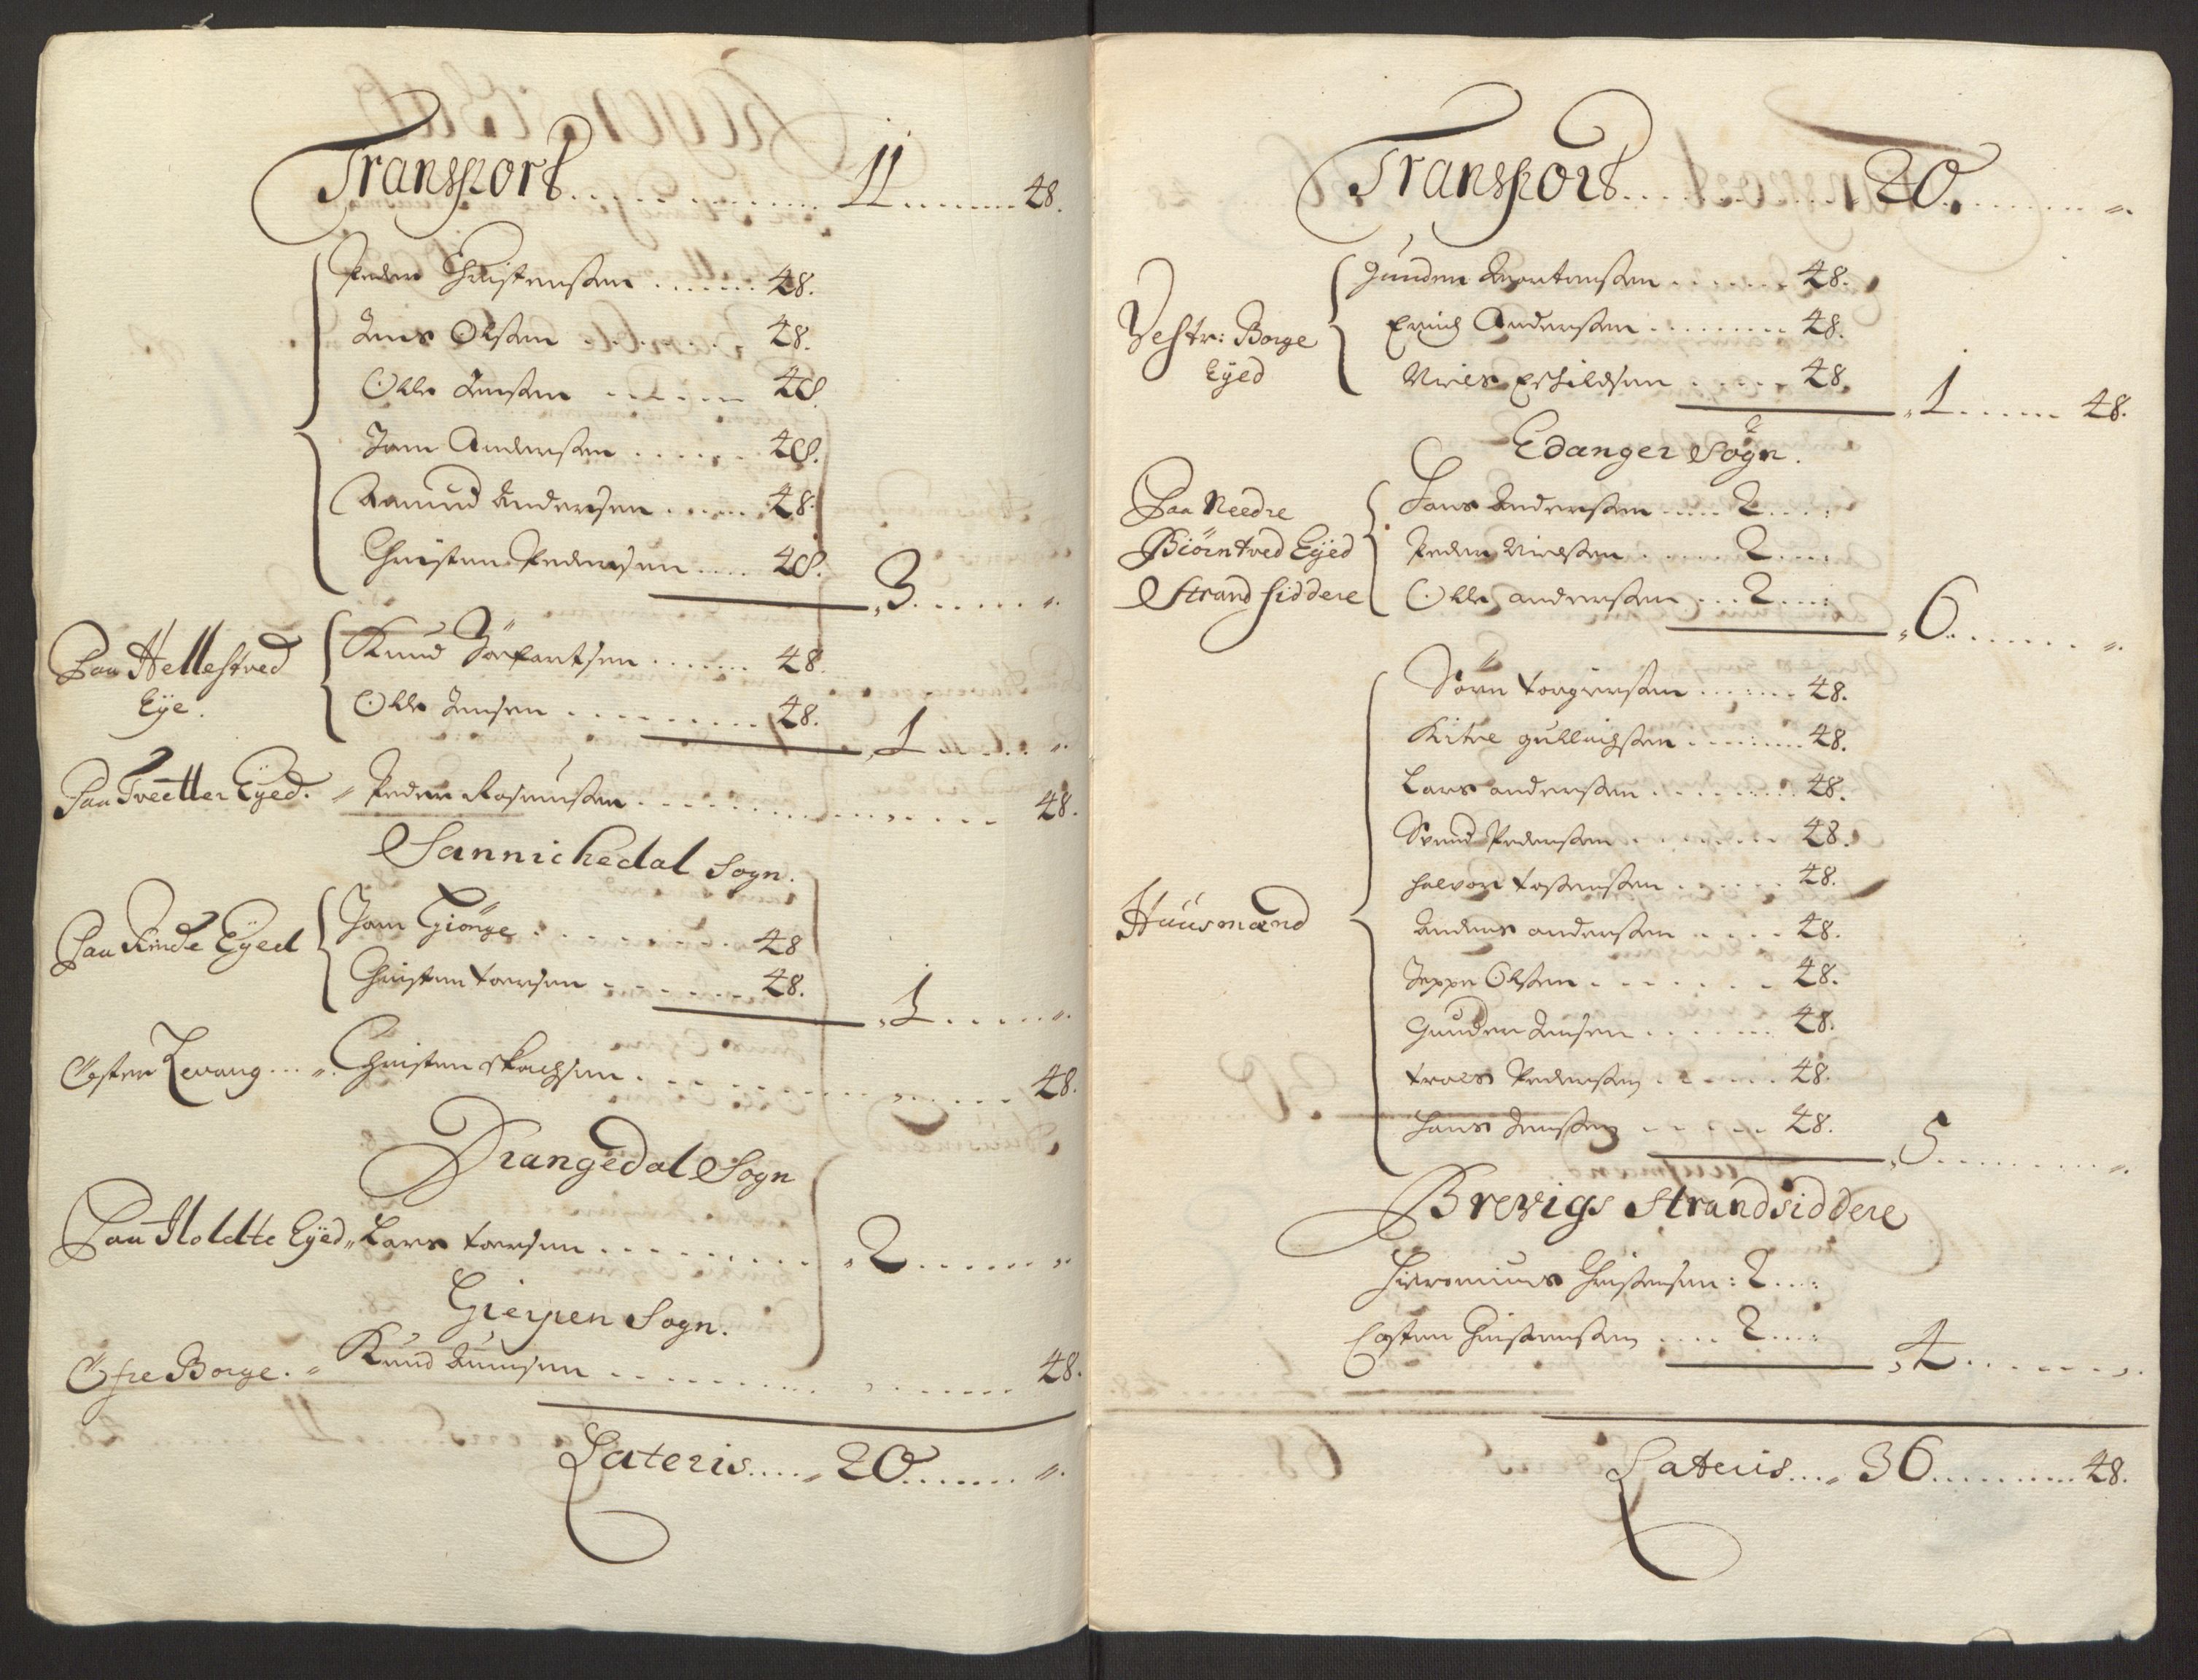 Transport ............. 11 ....... 48.
Peder Christensen ...... 48.
Jens Olsen ....... 48.
Olle Jensen ...... 48
Jam Andersen ...... 48.
Aamund Andersen ..... 48.
Christen Pedersen .... 48.
3 ...... "
Paa Hellestved Eÿe. Knud ...... 48
Olle Jensen ......... 48.
1 ..... "
Paa Tvetter Eÿed. " Peder Rasmussen ............ 48.
Sannichedal Sogn.
Paa Rinde Eÿed Jam Giönge ......... 48
Christen Torsen ....... 48.
1 ...... "
Öster Levang ... " Christen ............. 48.
Drangedal Sogn
Paa Holdte Eÿed " Lars Torsen ......... " 2 ...... "
Gierpen Sogn.
Öfre Borge. " Knud Amunsen ............. 48.
Lateris .... " 20 ....... "
Transport ......... 20. ........ "
Vestr: Borge Eÿed Gunder Mortensen ...... 48.
Erich Andersen ........ 48.
Niels Eskildsen ...... 48
" 1 ...... 48.
Edanger Sogn.
Paa Needre Biörntved Eÿed Strandsiddere Hans Andersen .... 2 ... :
Peder Nielsen ..... 2 ... :
Olle andersen ... 2 ... :
" 6 ....... "
Huusmænd Sörn Torgiersen ....... 48.
Kitel gullichsen ....... 48.
Lars andersen ........ 48.
Svend Pedersen ....... 48.
Halvor Tostensen ...... 48.
Anders andersen ..... 48.
Jeppe Olsen ....... 48.
Gunder Jensen ...... 48.
Troels Pedersen ..... 48.
Hans Jensen ..... 48.
" 5 ........ "
Brevigs Strandsiddere
Hieronimus Christensen : 2 ... :
Christensen .... 2 ... :
" 4 ....... "
Lateris ... " 36 ......... 48.